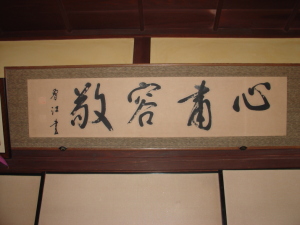 心肅容敬